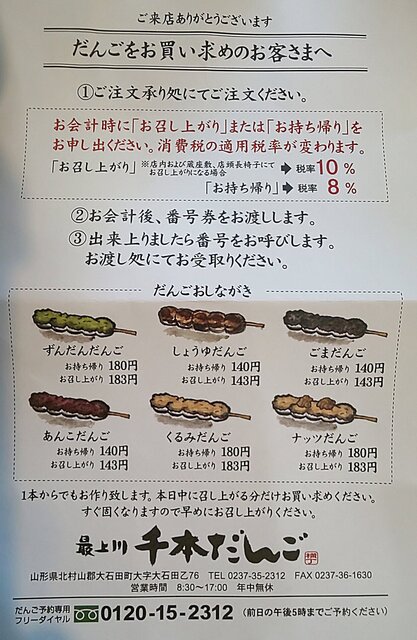 ご来店ありがとうございます
だんごをお買い求めのお客さまへ
①ご注文承り処にてご注文ください。
お会計時に「お召し上がり」または「お持ち帰り」を
お申し出ください。消費税の適用税率が変わります。
「お召し上がり」 ※店内および蔵座敷、店頭長椅子にて
お召し上がりになる場合 ➡ 税率10％
「お持ち帰り」➡ 税率 8％
②お会計後、番号券をお渡しします。
③出来上りましたら番号をお呼びします。
お渡し処にてお受取りください。
だんごおしながき
ずんだんだんご
お持ち帰り 180円
お召し上がり 183円
しょうゆだんご
お持ち帰り 140円
お召し上がり 143円
ごまだんご
お持ち帰り 140円
お召し上がり 143円
あんこだんご
お持ち帰り 140円
お召し上がり 143円
くるみだんご
お持ち帰り 180円
お召し上がり 183円
ナッツだんご
お持ち帰り 180円
お召し上がり 183円
1本からでもお作り致します。本日中に召し上がる分だけお買い求めください。
すぐ固くなりますので早めにお召し上がりください。
最上川 千本だんご
山形県北村山郡大石田町大字大石田乙76 TEL 0237-35-2312 FAX 0237-36-1630
営業時間 8:30〜17:00 年中無休
だんご予約専用
フリーダイヤル 0120-15-2312 （前日の午後5時までご予約ください）